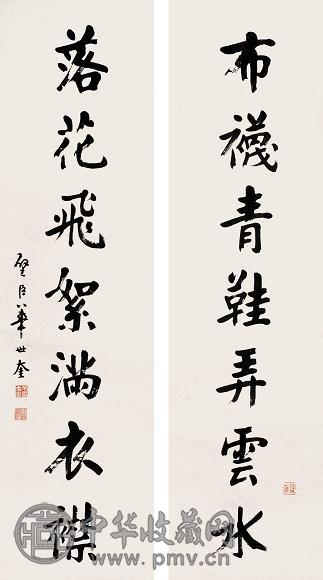 布襪青鞋弄雲水
落花飛絮滿衣襟
璧臣華世奎
中华收藏网
www.pmv.cn